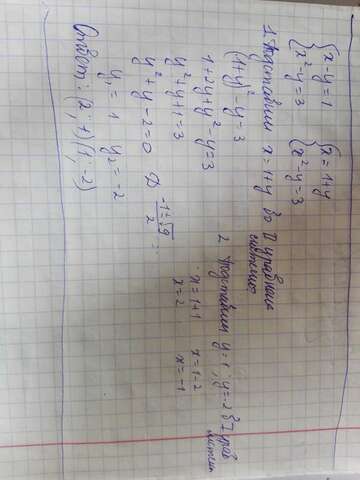 {x-y=1
x²-y=3
{x=1+y
x²-y=3
1. Подставим x=1+y во II уравнение
системы
(1+y)²-y=3
1+2y+y²-y=3
y²+y+1=3
y²+y-2=0
-1±√9
2
y₁=1 y₂=-2
2. Подставим y=1; y=-2 в I урав
системы
x=1+1 x=1-2
x=2 x=-1
Ответ: (2; 1) (1; -2)